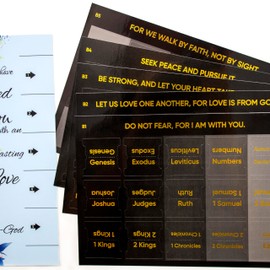 have
ed
You
with an
lasting
Love
-God
B5
FOR WE WALK BY FAITH, NOT BY SIGHT
B4
SEEK PEACE AND PURSUE IT
B3
BE STRONG, AND LET YOUR HEART TAKE
B2
LET US LOVE ONE ANOTHER, FOR LOVE IS FROM GO
B1
DO NOT FEAR, FOR I AM WITH YOU.
Genesis Exodus Leviticus Numbers
Genesis Exodus Leviticus Numbers
Joshua Judges Ruth 1 Samuel
Joshua Judges Ruth 1 Samuel
1 Kings 2 Kings 1 Chronicles 2 Chronicles
1 Kings 2 Kings 1 Chronicles 2 Chronicles